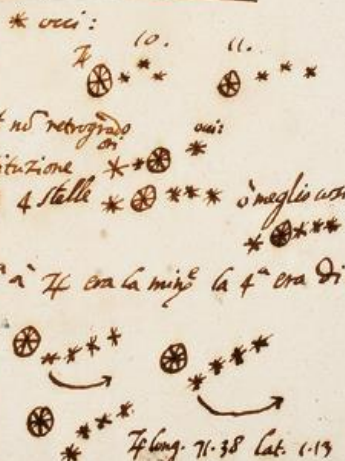 * occi:
♃ 10. 11.
nō retrogrado
ori occi:
ituzione
4 stelle ò meglio così
à ♃ era la min^e la 4^a era di
♃ long. 71.38 lat. 1.13